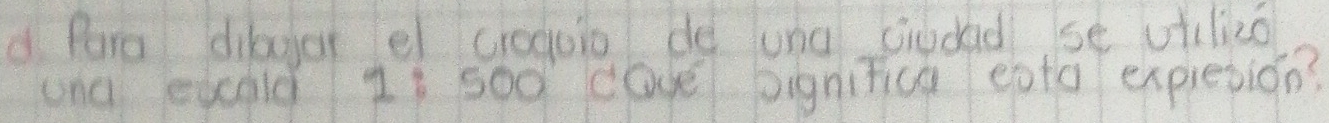 d. Para dibujar el croquis de una ciudad se utilizó
una escala 1: 500 ¿Qué significa esta expresión?